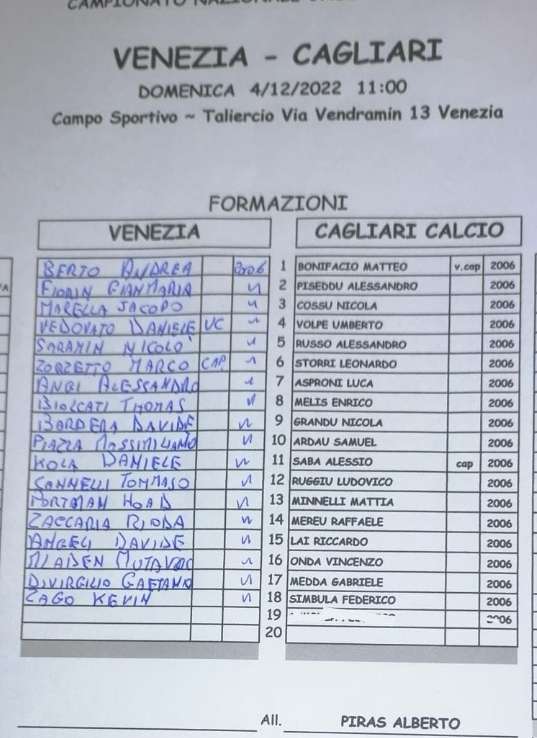 VENEZIA - CAGLIARI
DOMENICA 4/12/2022 11:00
Campo Sportivo ~ Taliercio Via Vendramin 13 Venezia
FORMAZIONI
VENEZIA CAGLIARI CALCIO
BERTO ANDREA 2006 1 BONIFACIO MATTEO v.cap 2006
FIORIN GIANMARIA 2 PISEDDU ALESSANDRO 2006
MARELLA JACOPO 3 COSSU NICOLA 2006
VEDOVATO DANIELE VC 4 VOLPE UMBERTO 2006
NICOLÒ 5 RUSSO ALESSANDRO 2006
ZORZETTO MARCO CAP 6 STORRI LEONARDO 2006
ALESSANDRO 7 ASPRONI LUCA 2006
BIOLCATI THOMAS 8 MELIS ENRICO 2006
BORDERA DAVIDE 9 GRANDU NICOLA 2006
PIAZZA MASSIMILIANO 10 ARDAU SAMUEL 2006
KOLA DANIELE 11 SABA ALESSIO cap 2006
TOMMASO 12 RUGGIU LUDOVICO 2006
13 MINNELLI MATTIA 2006
ZACCARIA 14 MEREU RAFFAELE 2006
ANGELI DAVIDE 15 LAI RICCARDO 2006
MLADEN 16 ONDA VINCENZO 2006
DIVIRGILIO GAETANO 17 MEDDA GABRIELE 2006
ZAGO KEVIN 18 SIMBULA FEDERICO 2006
19
20
All. PIRAS ALBERTO